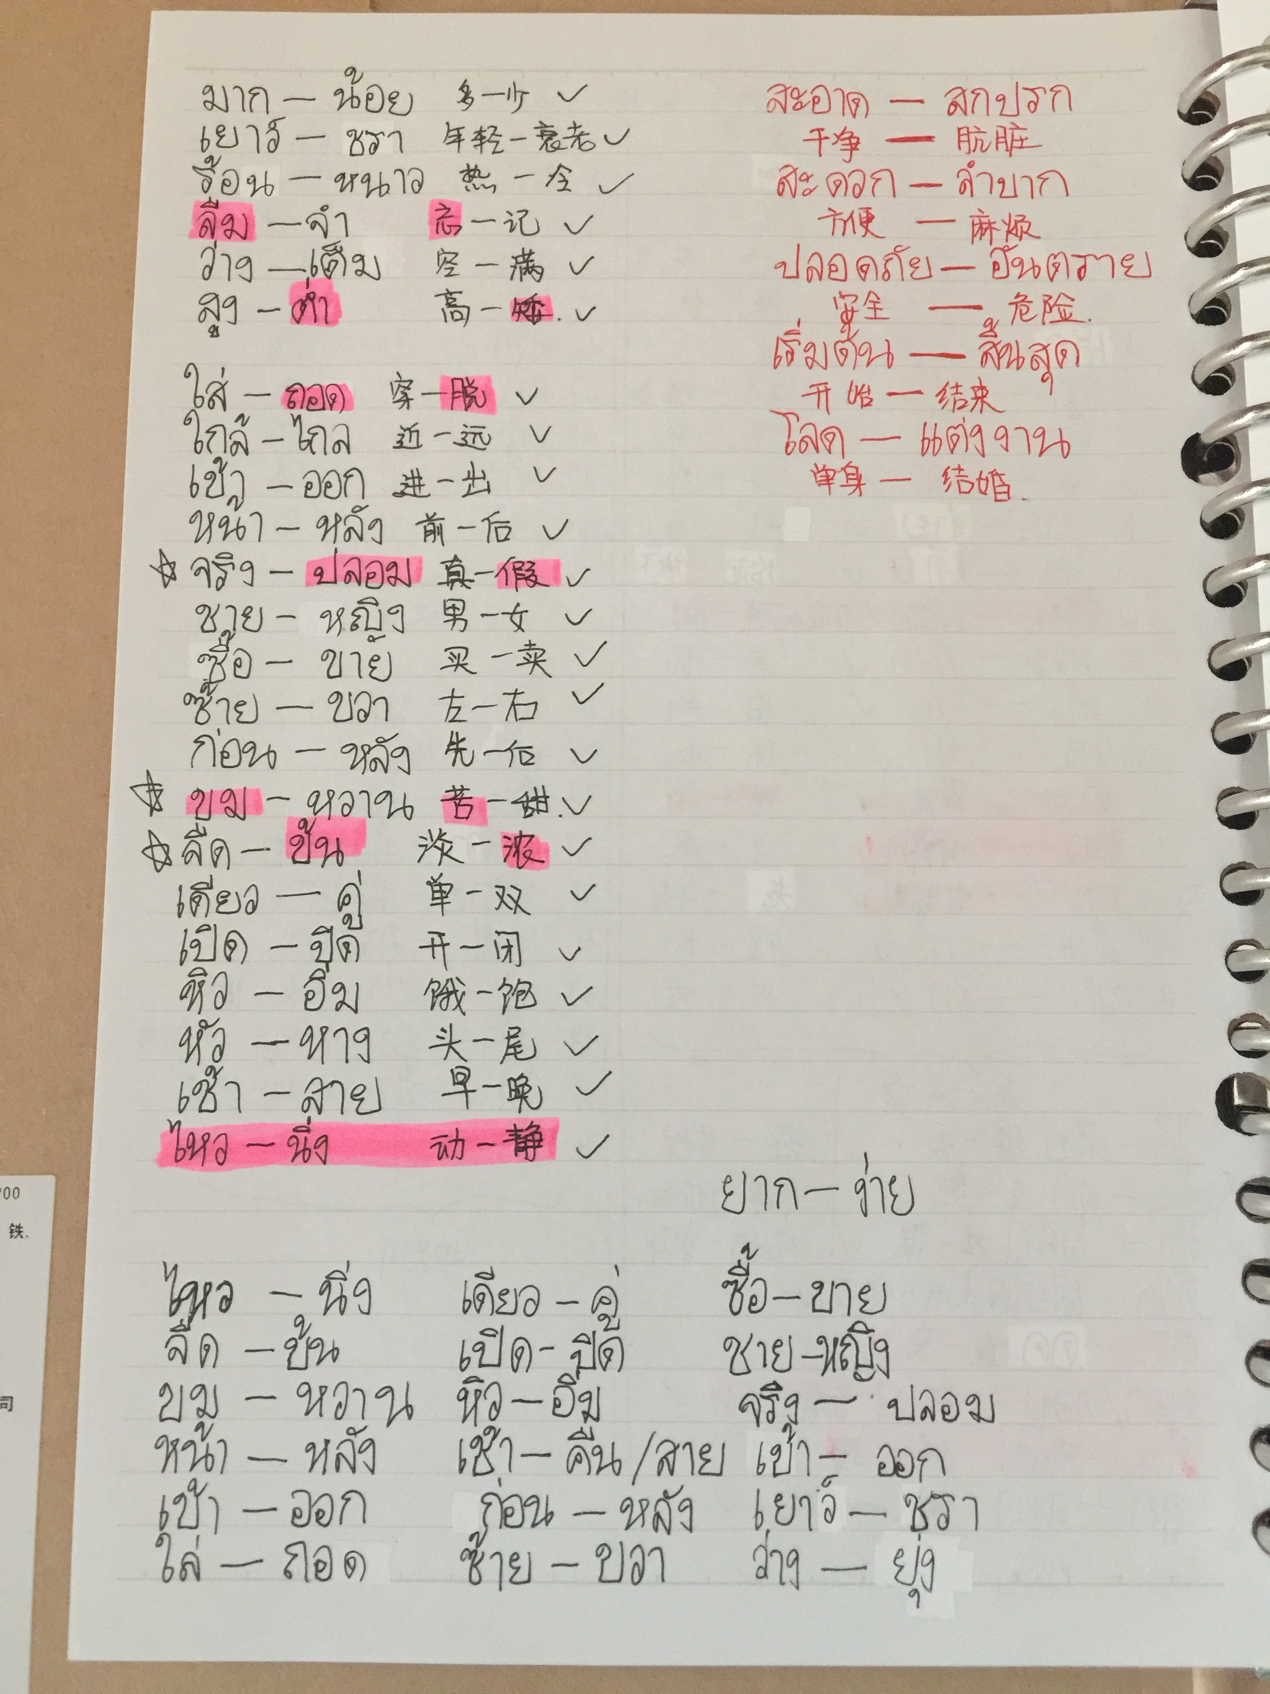 มาก — น้อย 多—少 ✓
เยาว์ — ชรา 年轻—衰老 ✓
ร้อน — หนาว 热—冷 ✓
ลืม — จำ 忘—记 ✓
ว่าง — เต็ม 空—满 ✓
สูง — ต่ำ 高—矮. ✓
ใส่ — ถอด 穿—脱 ✓
ใกล้ — ไกล 近—远 ✓
เข้า — ออก 进—出 ✓
หน้า — หลัง 前—后 ✓
☆ จริง — ปลอม 真—假 ✓
ชาย — หญิง 男—女 ✓
ซื้อ — ขาย 买—卖 ✓
ซ้าย — ขวา 左—右 ✓
ก่อน — หลัง 先—后 ✓
☆ ขม — หวาน 苦—甜. ✓
☆ จืด — ข้น 淡—浓 ✓
เดียว — คู่ 单—双 ✓
เปิด — ปิด 开—闭 ✓
หิว — อิ่ม 饿—饱 ✓
หัว — หาง 头—尾 ✓
เช้า — สาย 早—晚 ✓
ไหว — นิ่ง 动—静 ✓
สะอาด — สกปรก
干净 — 肮脏
สะดวก — ลำบาก
方便 — 麻烦
ปลอดภัย — อันตราย
安全 — 危险.
เริ่มต้น — สิ้นสุด
开始 — 结束
โสด — แต่งงาน
单身 — 结婚.
ยาก — ง่าย
ไหว — นิ่ง เดียว — คู่ ซื้อ — ขาย
จืด — ข้น เปิด — ปิด ชาย — หญิง
ขม — หวาน หิว — อิ่ม จริง — ปลอม
หน้า — หลัง เช้า — คืน / สาย เข้า — ออก
เข้า — ออก ก่อน — หลัง เยาว์ — ชรา
ใส่ — ถอด ซ้าย — ขวา ว่าง — ยุ่ง
700
铁.
司